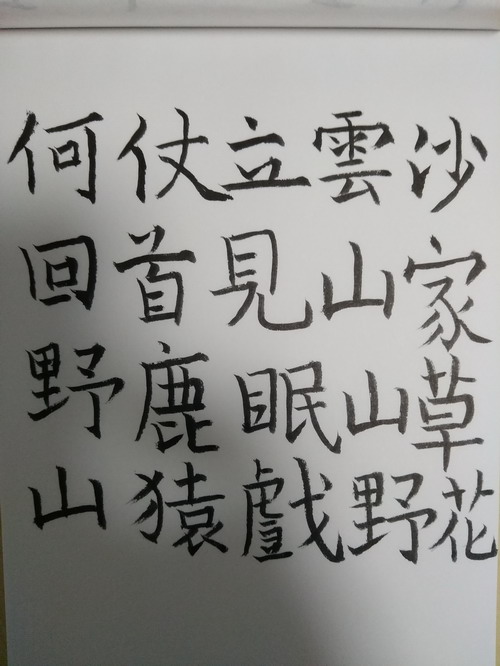 何仗立雲沙
回首見山家
野鹿眠山草
山猿戲野花